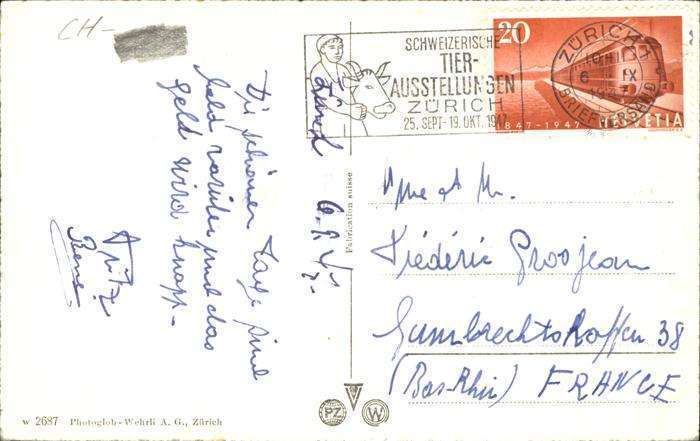 CH-
SCHWEIZERISCHE
TIER-
AUSSTELLUNGEN
ZÜRICH
25. SEPT-19. OKT. 1947
20
1847-1947
HELVETIA
ZÜRICH
6 IX
BRIEFVERSAND
Zürich
Die schönen Tage sind
bald vorüber und das
Geld wird knapp-
Fritz
Fabrication suisse
Mme et Mr.
Frédéric Grosjean
Gumbrechtshoffen 38
(Bas-Rhin) FRANCE
PZ
W
w 2687 Photoglob-Wehrli A. G., Zürich